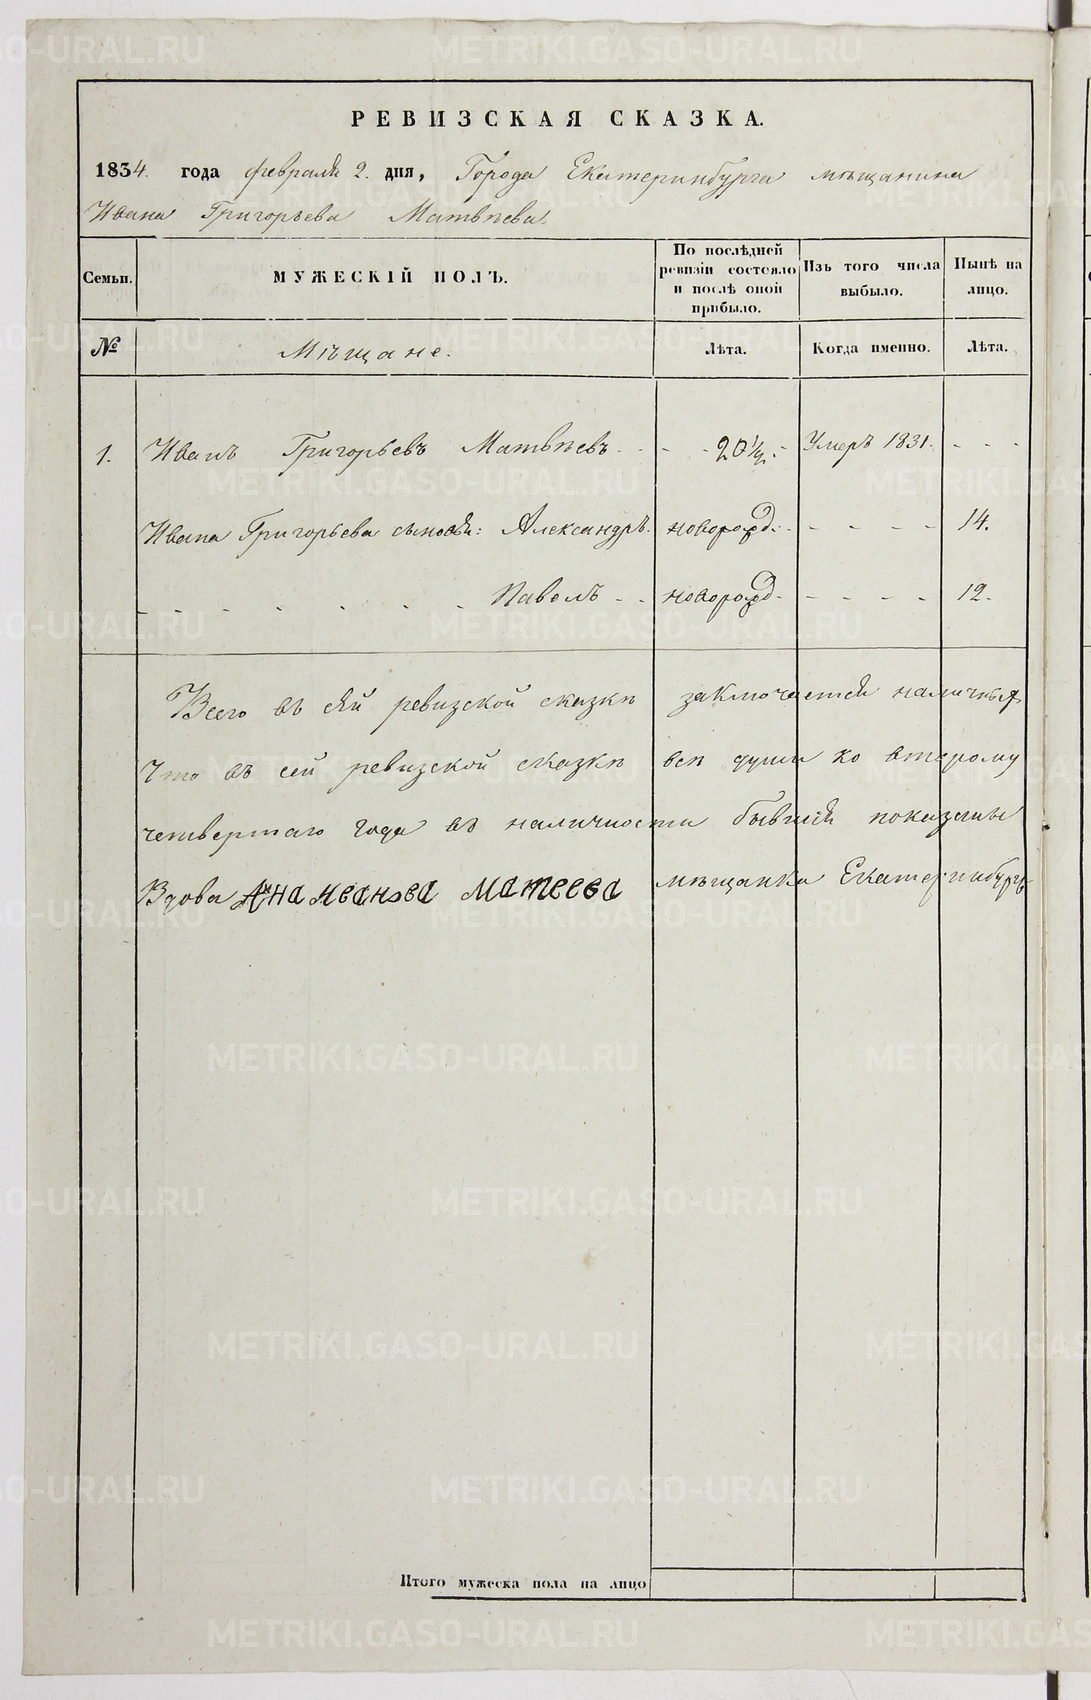 РЕВИЗСКАЯ СКАЗКА.
1834. года февраля 2. дня, Города Екатеринбурга мѣщанина
Ивана Григорьева Матвѣева.
Семьи. МУЖЕСКІЙ ПОЛЪ. По послѣдней ревизіи состояло и послѣ оной прибыло. Изъ того числа выбыло. Нынѣ на лицо.
№ Мѣщане. Лѣта. Когда именно. Лѣта.
1. Иванъ Григорьевъ Матвѣевъ - - - 20½. - Умеръ 1831. - - -
Ивана Григорьева сыновья: Александръ. новорожд. - - - - - 14.
- - - - - - - Павелъ - - новорожд. - - - - - 12.
Всего въ сей ревизской сказкѣ заключается наличныя
Что въ сей ревизской сказкѣ всѣ души ко второму
четвертаго года въ наличности бывшія показаны
Вдова Анна иванова матвеева мѣщанка Екатеринбургъ
Итого мужеска пола на лицо
METRIKI.GASO-URAL.RU